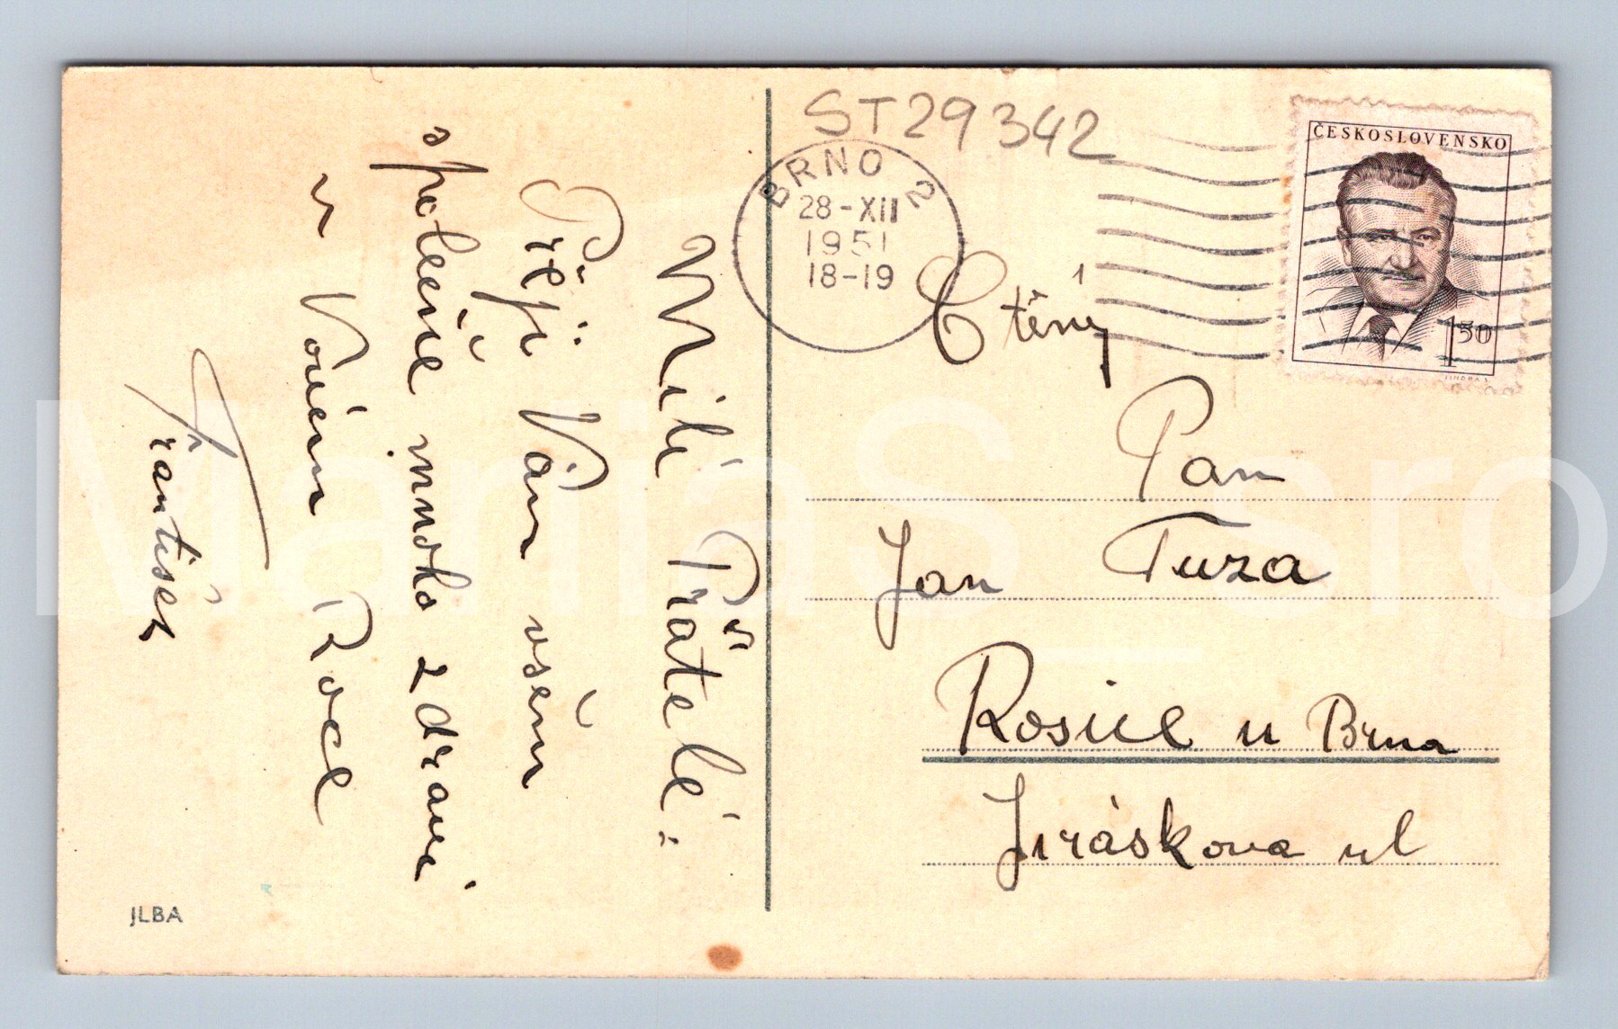 Milí Přátelé:
Přeji Vám všem
společně mnoho zdraví
v Novém Roce
František
JLBA
ST29342
BRNO 2
28-XII
1951
18-19
ČESKOSLOVENSKO
1.50
Ctěný
Pan
Jan Tuza
Rosice u Brna
Jiráskova ul